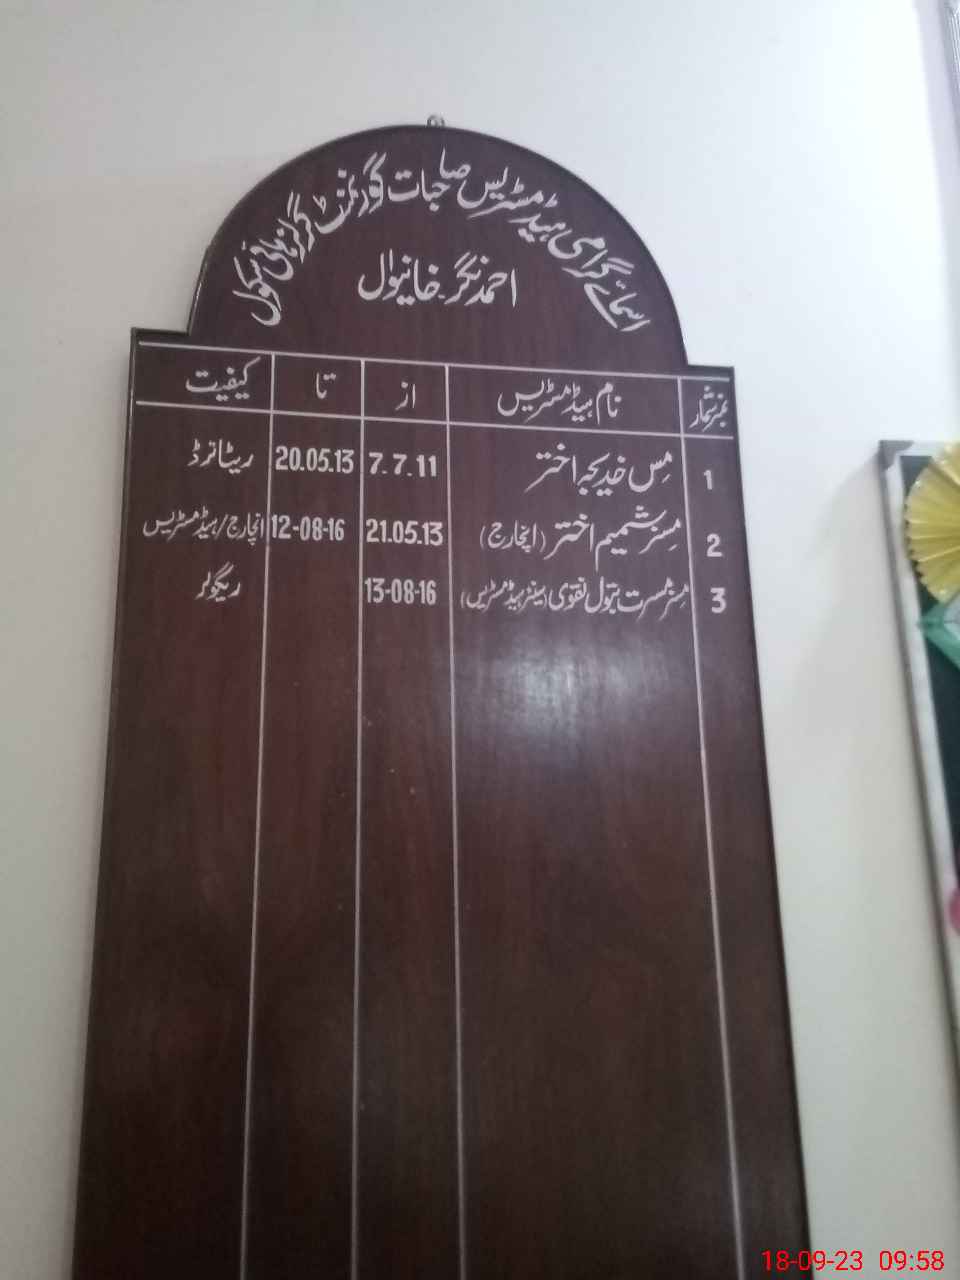 اسمائے گرامی ہیڈ مسٹریس صاحبات گورنمنٹ گرلز ہائی سکول
احمد نگر۔ خانیوال
نمبر شمار نام ہیڈ مسٹریس از تا کیفیت
1 مس خدیجہ اختر 7.7.11 20.05.13 ریٹائرڈ
2 مسز شمیم اختر (انچارج) 21.05.13 12-08-16 انچارج/ہیڈ مسٹریس
3 مسز مسرت بتول نقوی (سینئر ہیڈ مسٹریس) 13-08-16 ریگولر
18-09-23 09:58